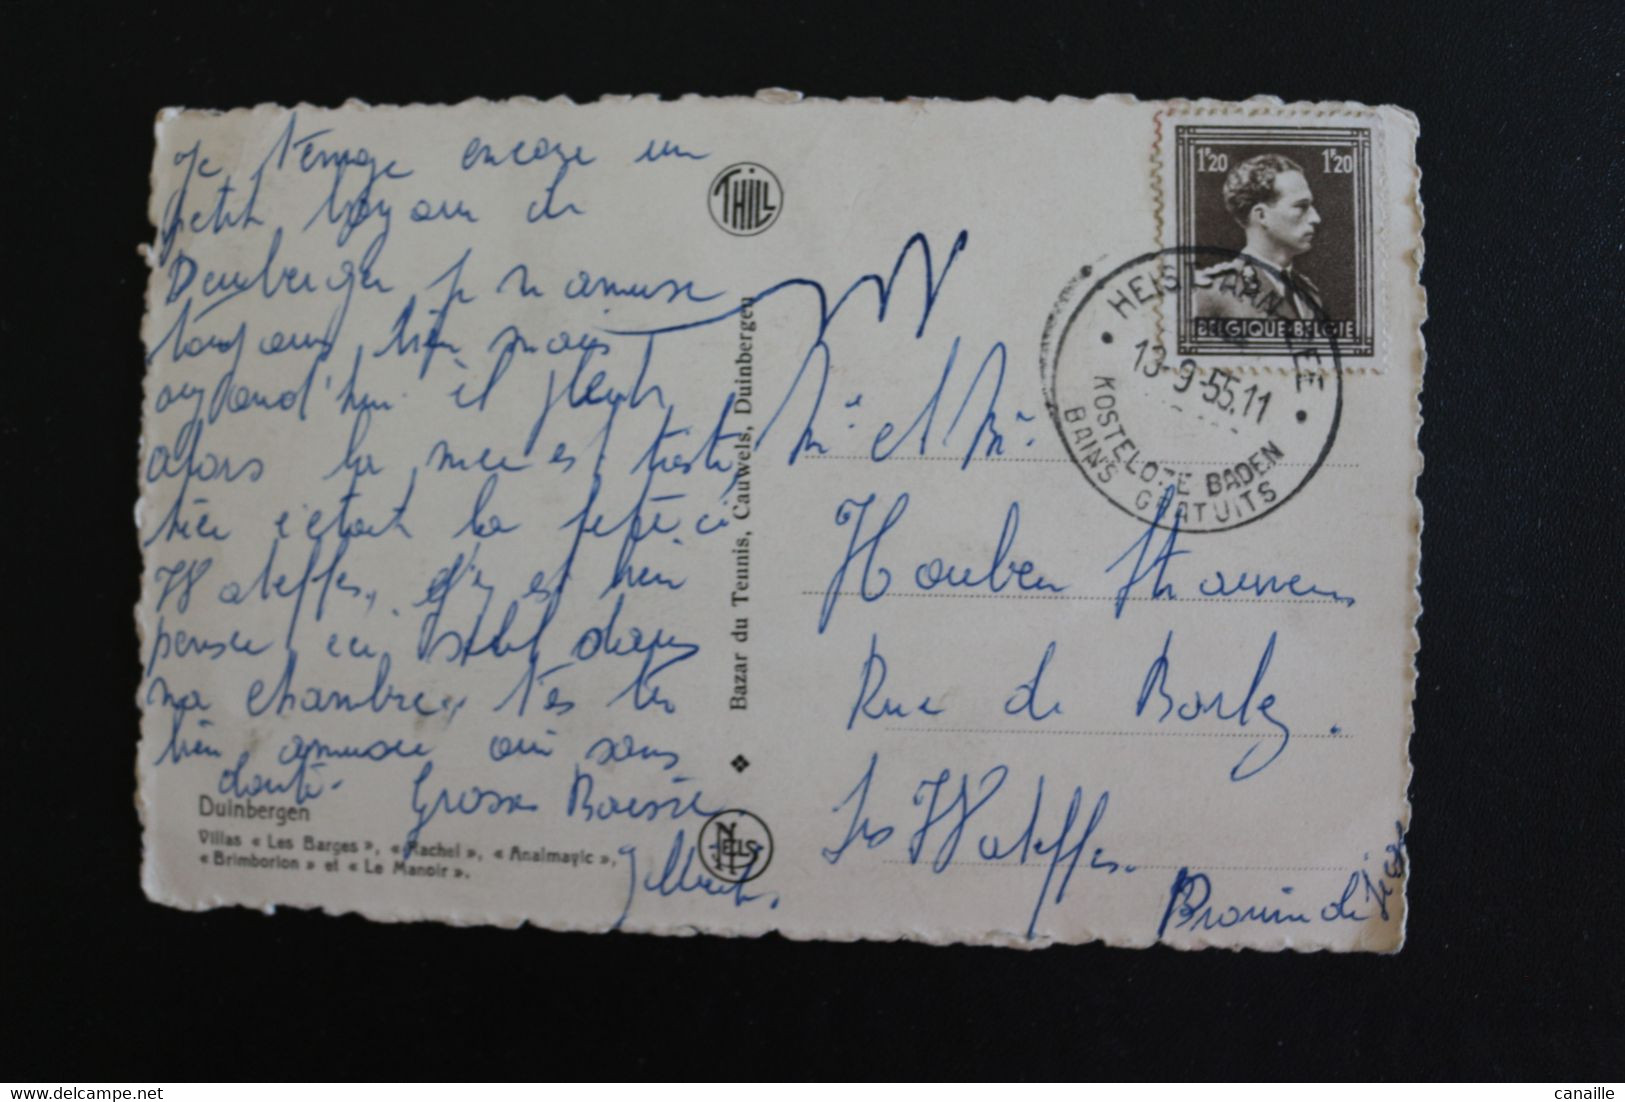 Je t'envoye encore un
petit bonjour de
Duinbergen je m'amuse
toujours bien mais
aujourd'hui il pleut
alors la mer est triste
hier c'était la fête à
Waleffes, j'y ai bien
pensée ici seul dans
ma chambre, t'es tu
bien amusée oui sans
doute. Grosses Baises
Gilberte
Duinbergen
Villas « Les Barges », « Rachel », « Analmayic »,
« Brimborion » et « Le Manoir ».
THILL
Bazar du Tennis, Cauwels, Duinbergen
NELS
1F20 1F20
BELGIQUE-BELGIE
HEIST AAN ZEE
13-9-55.11
KOSTELOZE BADEN
BAINS GRATUITS
Mr et Mme
Houben
Rue de Borlez.
Les Waleffes.
Province de Liège
canaille
delcampe.net